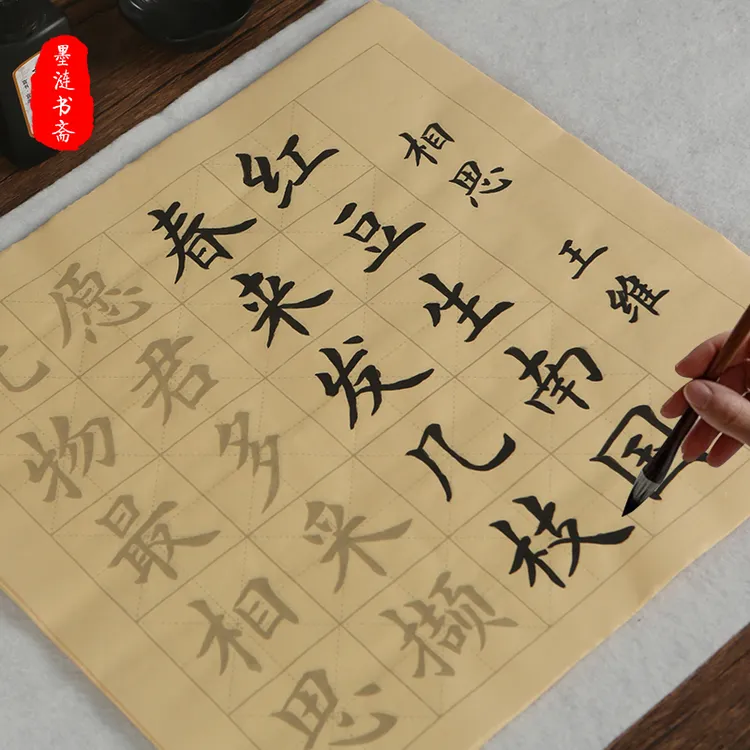 墨涟书斋
相思
王维
红豆生南国
春来发几枝
愿君多采撷
物最相思